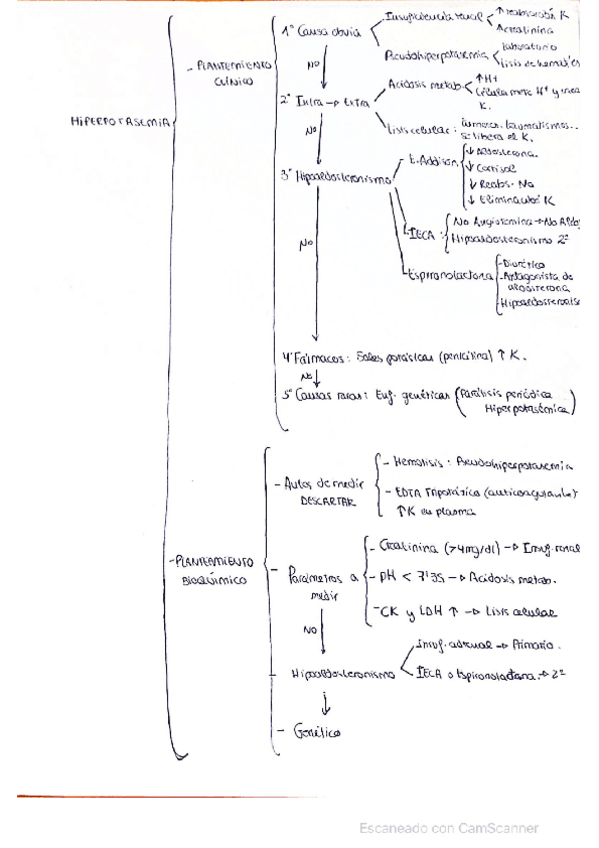 HIPERPOTASEMIA
- PLANTEAMIENTO
CLÍNICO
1º Causa obvia
Insuficiencia renal
↑ reabsorción K
↓ creatinina
Pseudohiperpotasemia
laboratorio
lisis de hematíes
NO
2º Intra → Extra
Acidosis metab.
↑ H+
Célula mete H+ y saca
K.
Lisis celular : tumores, traumatismos..
se libera el K.
NO
3º Hipoaldosteronismo
E. Addison
↓ Aldosterona.
↓ Cortisol
↓ Reabs. Na
↓ Eliminación K
IECA :
No Angiotensina → No Aldo
Hipoaldosteronismo 2º
Espironolactona
- Diurético
- Antagonista de
aldosterona
- Hipoaldosteronis
NO
4º Fármacos : Sales potásicas (penicilina) ↑ K.
NO
5º Causas raras : Enf. genéticas (Parálisis periódica
Hiperpotasémica)
- PLANTEAMIENTO
BIOQUÍMICO
- Antes de medir
DESCARTAR
- Hemolisis : Pseudohiperpotasemia
- EDTA Tripotásico (anticoagulante)
↑ K en plasma
- Parámetros a
medir
- Creatinina (>4mg/dl) → Insuf. renal
- pH < 7'35 → Acidosis metab.
- CK y LDH ↑ → Lisis celular
NO
- Hipoaldosteronismo
Insuf. adrenal → Primario.
IECA o Espironolactona → 2º
- Genético
Escaneado con CamScanner